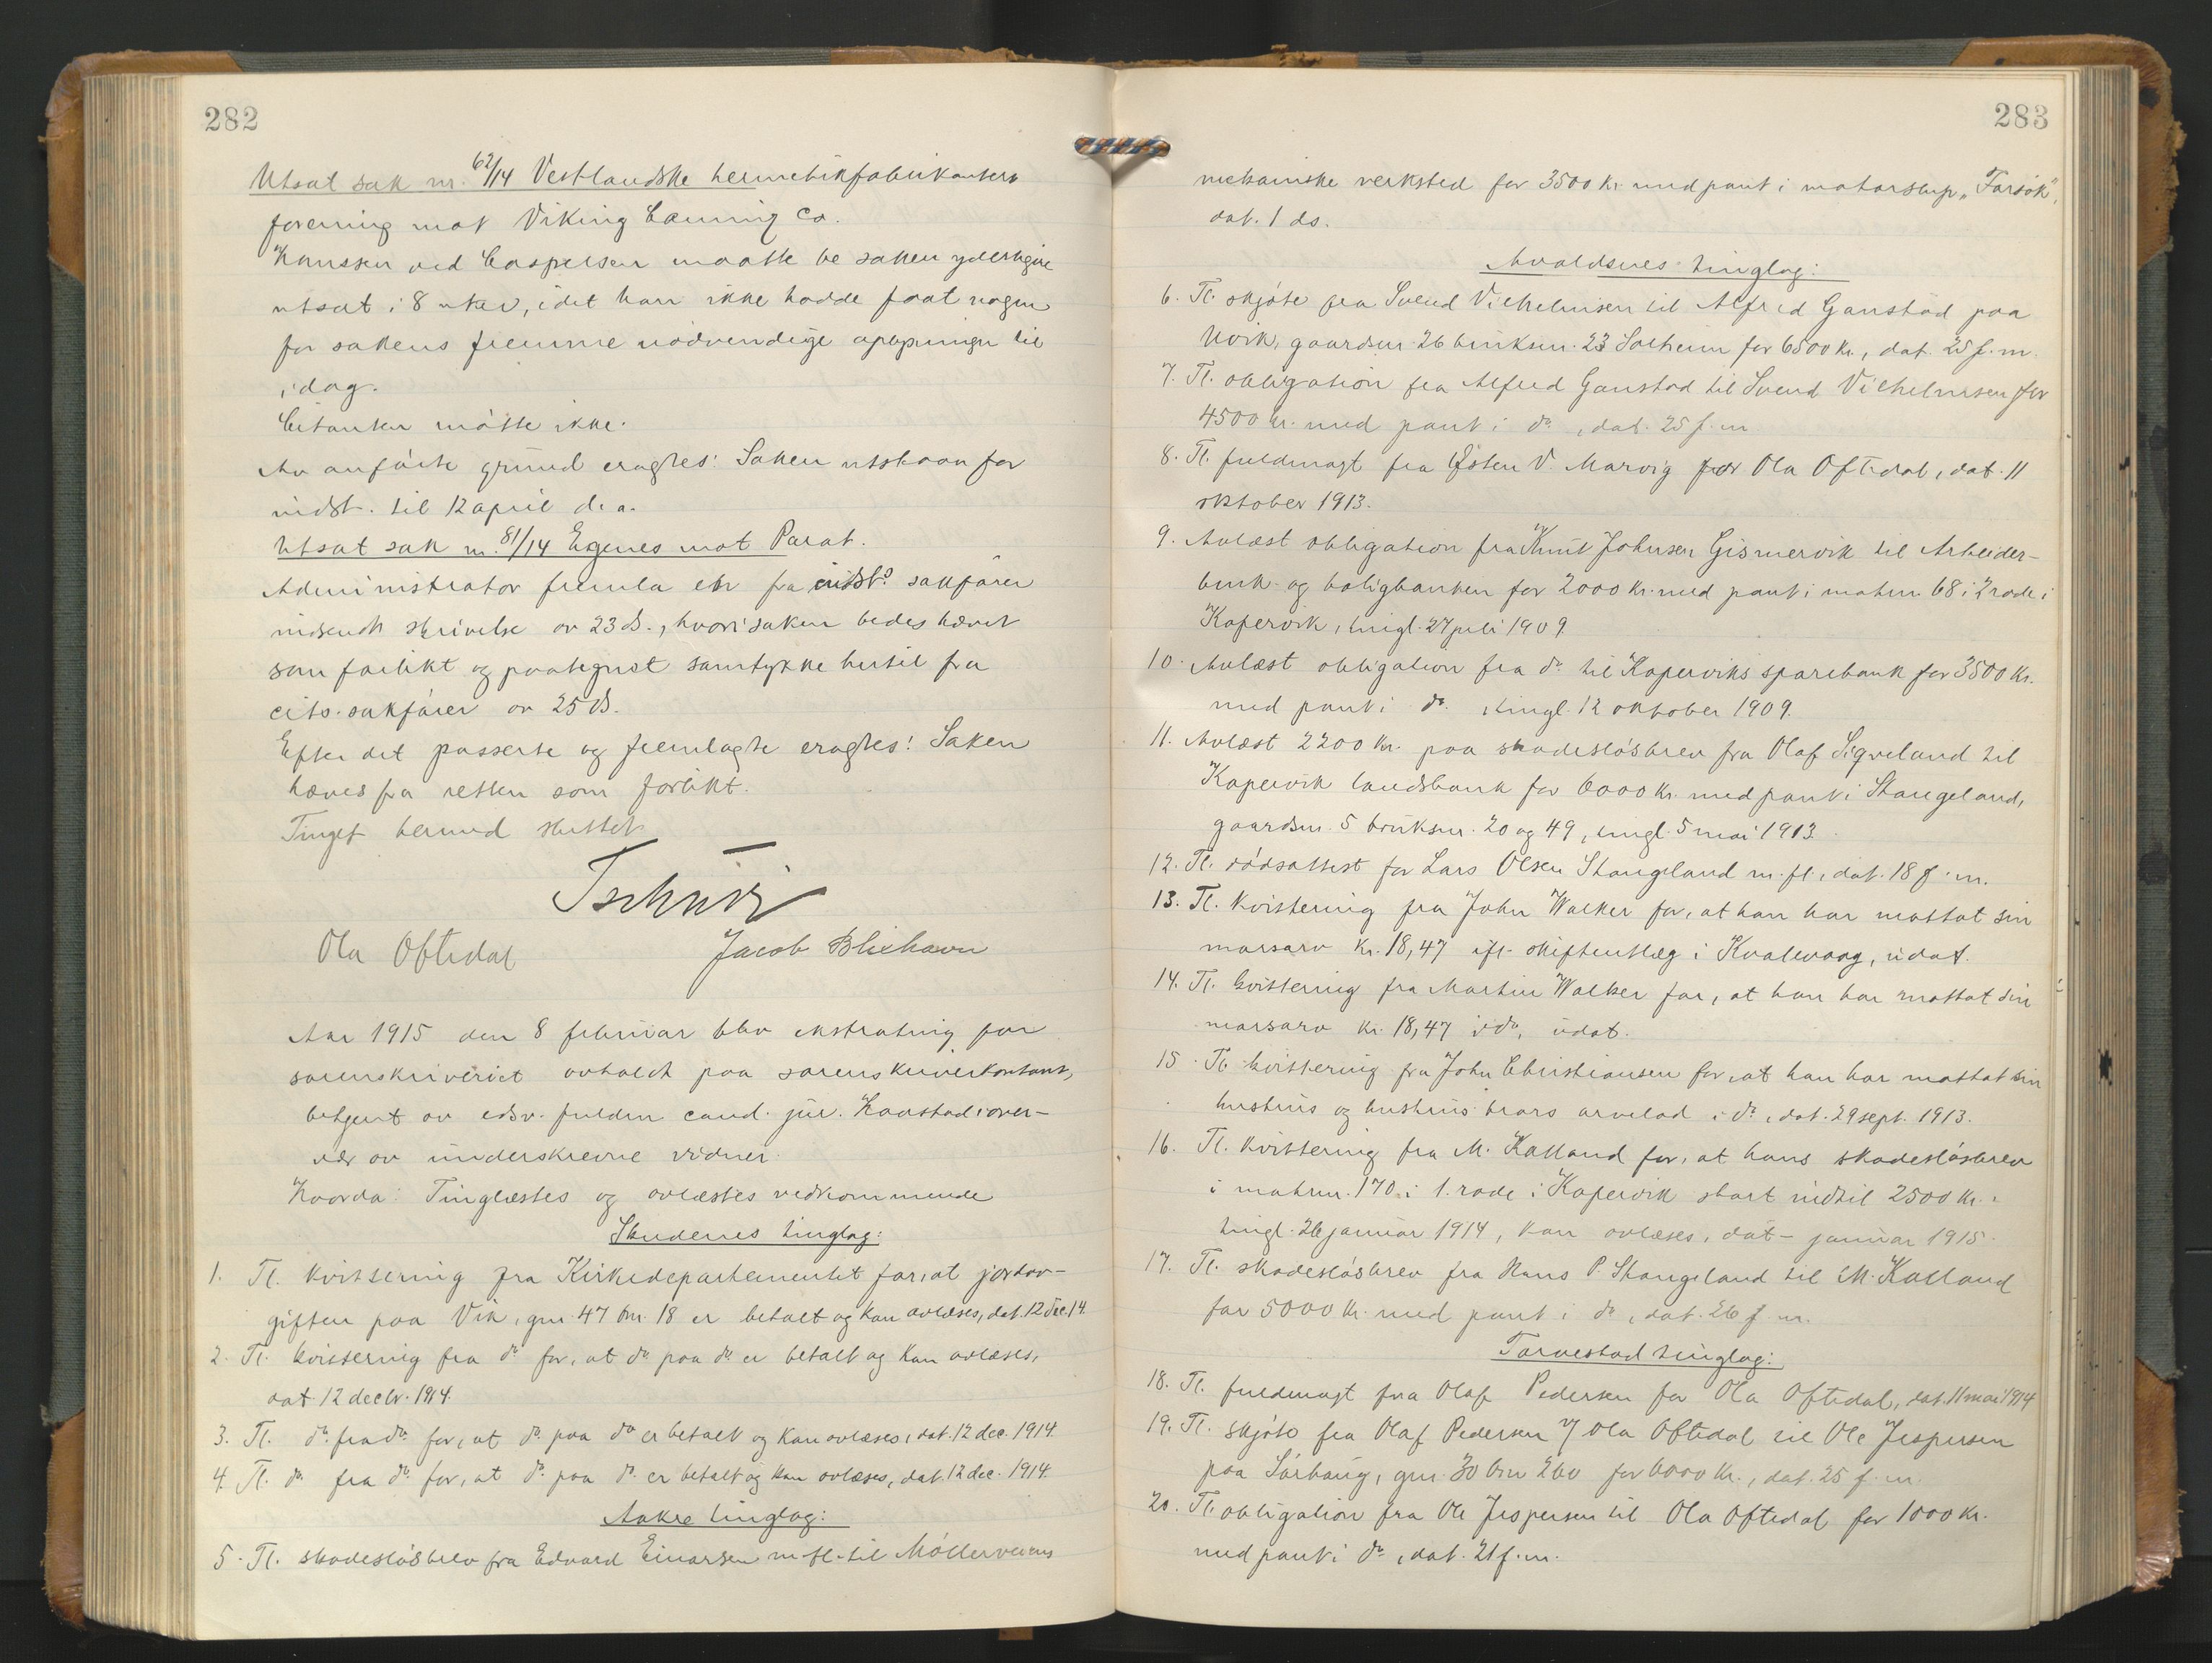 282
Utsat sak nr. 62/14 Vestlandske hermetikfabrikanters
forening mot Viking Canning Co.
Hanssen ved Caspersen maatte be saken yderligere
utsat i 8 uker, idet han ikke hadde faat nogen
for sakens fremme nødvendige oplysninger til
idag.
Citanten møtte ikke.
Av anførte grund eragtes: Saken utstaar for
indst. til 12 april d.a.
Utsat sak nr. 81/14 Egenes mot Parat.
Administrator fremla en fra indst.s sakfører
indsendt skrivelse av 23 ds., hvori saken bedes hævet
som forlikt og paategnet samtykke hertil fra
cits. sakfører av 25 ds.
Efter det passerte og fremlagte eragtes: Saken
hæves fra retten som forlikt.
Tinget hermed sluttet
Ola Oftedal Jacob Blixhavn
Aar 1915 den 8 februar blev ekstrating for
sorenskriveriet avholdt paa sorenskriverkontoret,
betjent av edsv. fuldm cand. jur. Haastad i over-
vær av underskrevne vidner.
Hvorda: Tinglæstes og avlæstes vedkommende
Skudenes tinglag:
1. Tl. kvittering fra Kirkedepartementet for, at jordav-
giften paa Vik, gnr. 47 bnr. 18 er betalt og kan avlæses, dat. 12 dec. 14.
2. Tl. kvittering fra do for, at do paa do er betalt og kan avlæses,
dat. 12 decbr. 1914.
3. Tl. do. fra do for, at do. paa do er betalt og kan avlæses, dat. 12 dec. 1914.
4. Tl. do fra do for, at do. paa do. er betalt og kan avlæses, dat. 12 dec. 1914.
Aakre tinglag:
5. Tl. skadesløsbrev fra Edvard Einarsen m. fl. til Møllerveiens
283
mekaniske verksted for 3500 kr. med pant i motorslup „Forsøk",
dat. 1 ds.
Avaldsnes tinglag:
6. Tl. skjøte fra Svend Vilhelmsen til Alfred Ganstad paa
Uvik, gaardsnr. 26 bruksnr. 23 Solheim for 6500 kr., dat. 25 f. m.
7. Tl. obligation fra Alfred Ganstad til Svend Vilhelmsen for
4500 kr. med pant i do, dat. 25 f. m
8. Tl. fuldmagt fra Østen V. Marvig for Ola Oftedal, dat. 11
oktober 1913.
9. Avlæst obligation fra Knut Johnsen Gismervik til Arbeider-
bruk- og boligbanken for 2000 kr. med pant i matrnr. 68 i 2 rode i
Kopervik, tingl. 27 juli 1909.
10. Avlæst obligation fra do til Koperviks sparebank for 3500 kr.
med pant i do. tingl. 12 oktober 1909.
11. Avlæst 2200 kr. paa skadesløsbrev fra Olaf Sigveland til
Kopervik landsbank for 6000 kr. med pant i Stangeland,
gaardsnr. 5 bruksnr. 20 og 49, tingl. 5 mai 1913.
12. Tl. dødsattest for Lars Olsen Stangeland m. fl., dat. 18 f. m.
13. Tl. kvittering fra John Walker for, at han har mottat sin
morsarv kr. 18,47 ifl. skifteutlæg i Kvalevaag, udat.
14. Tl. kvittering fra Martin Walker for, at han har mottat sin
morsarv kr. 18,47 i do, udat.
15. Tl. kvittering fra John Christiansen for, at han har mottat sin
hustrus og hustrus brors arvelod i do, dat. 29 sept. 1913.
16. Tl. kvittering fra M. Kalland for, at hans skadesløsbrev
i matrnr. 170 i 1. rode i Kopervik stort indtil 2500 kr.,
tingl. 26 januar 1914, kan avlæses, dat – januar 1915.
17. Tl. skadesløsbrev fra Hans P. Stangeland til M. Kalland
for 5000 kr. med pant i do, dat. 26 f. m.
Torvestad tinglag:
18. Tl. fuldmagt fra Olaf Pedersen for Ola Oftedal, dat. 11 mai 1914
19. Tl. skjøte fra Olaf Pedersen v/ Ola Oftedal til Ole Jespersen
paa Sørhaug, gnr. 30 bnr 260 for 6000 kr., dat. 25 f. m.
20. Tl. obligation fra Ole Jespersen til Ola Oftedal for 1000 kr.
med pant i do, dat. 21 f. m.